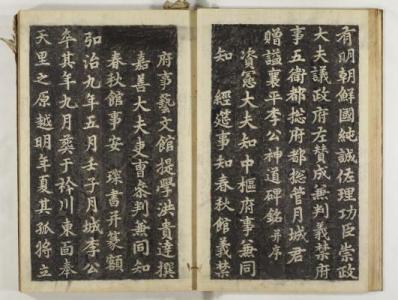 有明朝鮮國純誠佐理功臣崇政
大夫議政府左賛成兼判義禁府
事五衛都揔府都揔管月城君
贈謚襄平李公神道碑銘并序
資憲大夫知中樞府事兼同
知 經筵事知春秋館義禁
府事藝文館提學洪貴達撰
嘉善大夫吏曹叅判兼同知
春秋館事安 琛書并篆額
弘治九年五月壬子月城李公
卒其年九月葬于衿川東面奉
天里之原越明年夏其孤將立